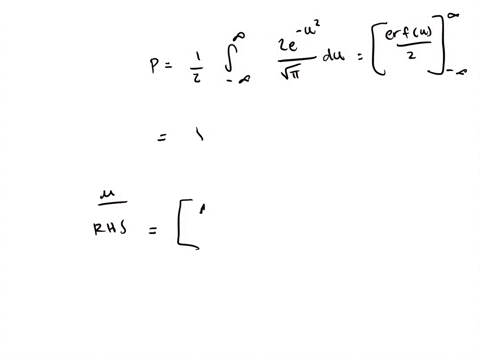 P = 1/2 ∫_{-∞}^{∞} 2e^{-u²}/√π du = [erf(u)/2]_{-∞}^{∞}
= \
μ
RHS = [